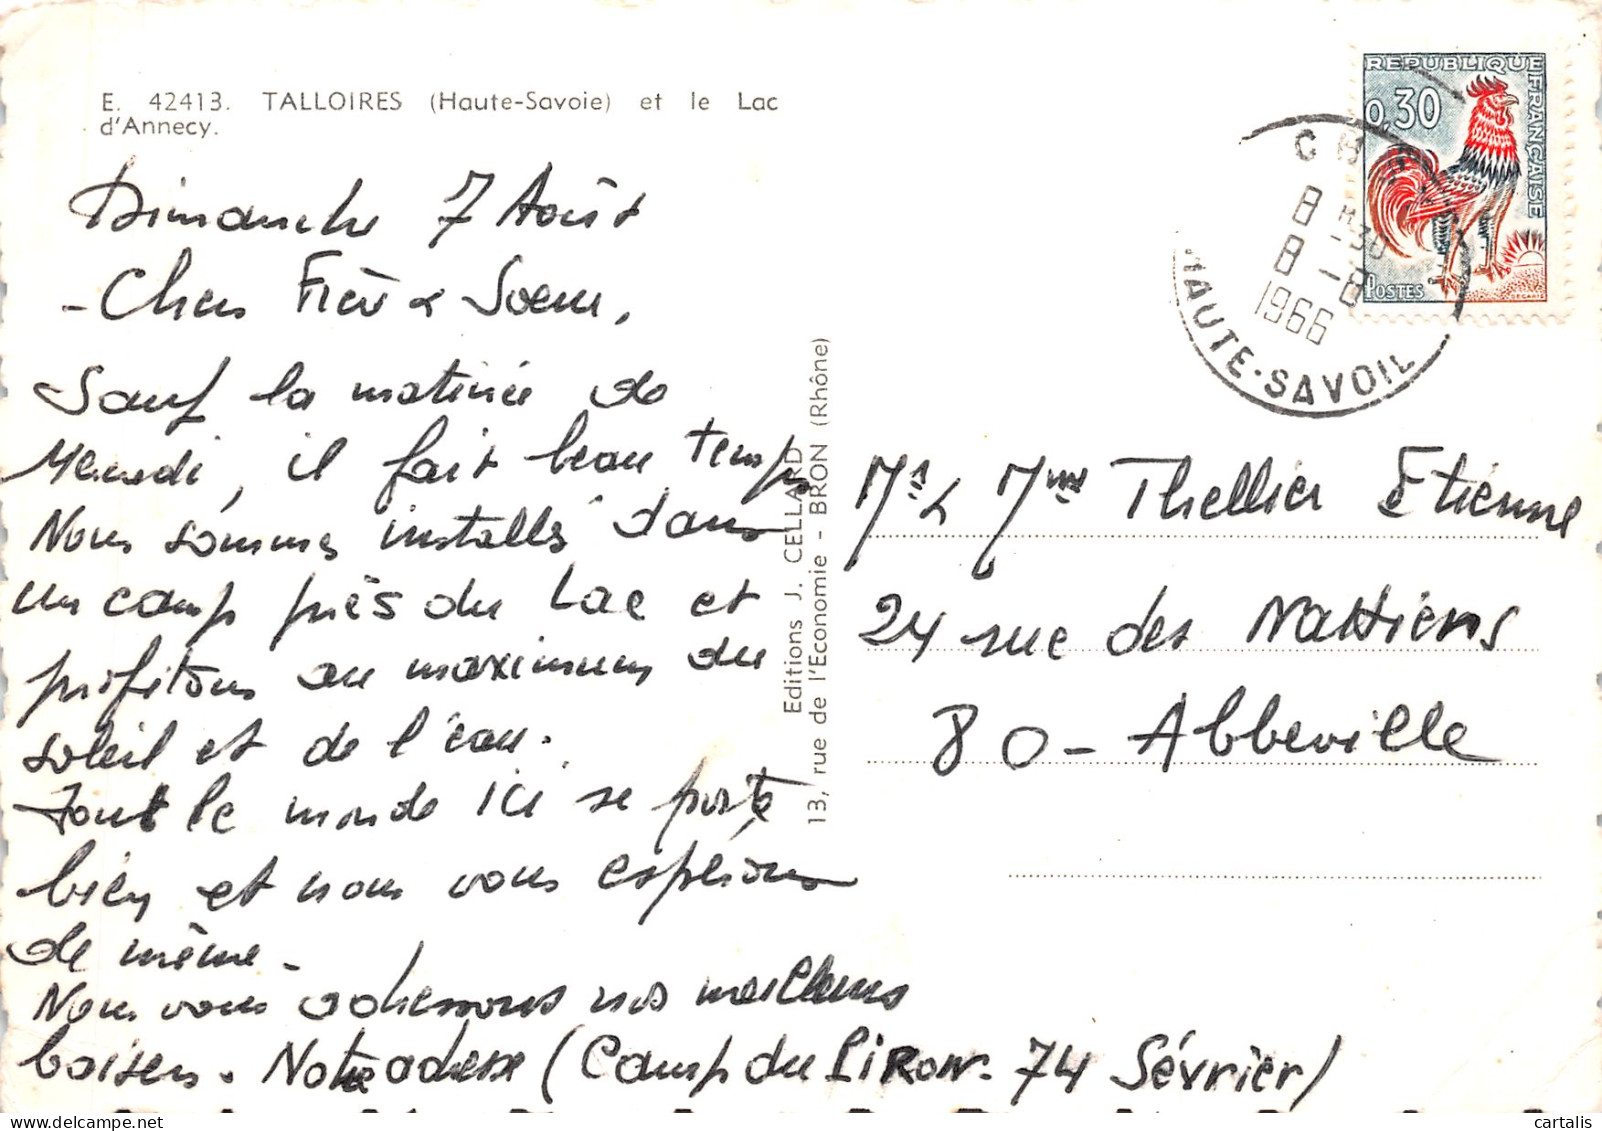 E. 42413. TALLOIRES (Haute-Savoie) et le Lac
d'Annecy.
Dimanche 7 Août
- Chers Frère & Soeur,
Sauf la matinée de
Mercredi, il fait beau temps
Nous sommes installés dans
un camp près du Lac et
profitons au maximum du
soleil et de l'eau.
Tout le monde ici se porte
bien et nous vous espérons
de même -
Nous vous adressons nos meilleurs
baisers. Notre adresse (Camp du PIRON. 74 Sévrier)
Editions J. CELLARD
13, rue de l'Economie - BRON (Rhône)
REPUBLIQUE FRANÇAISE
0,30
POSTES
DECARIS
8 H 30
8 - 8
1966
HAUTE-SAVOIE
Mr & Mme Thellier Etienne
24 rue des Nattiers
80 - Abbeville
delcampe.net
cartalis